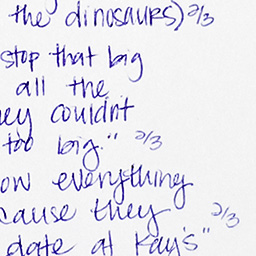 the dinosaurs) 2/3
stop that big
all the
ey couldnt
too big." 2/3
ow everything
cause they 2/3
date at Kay's"